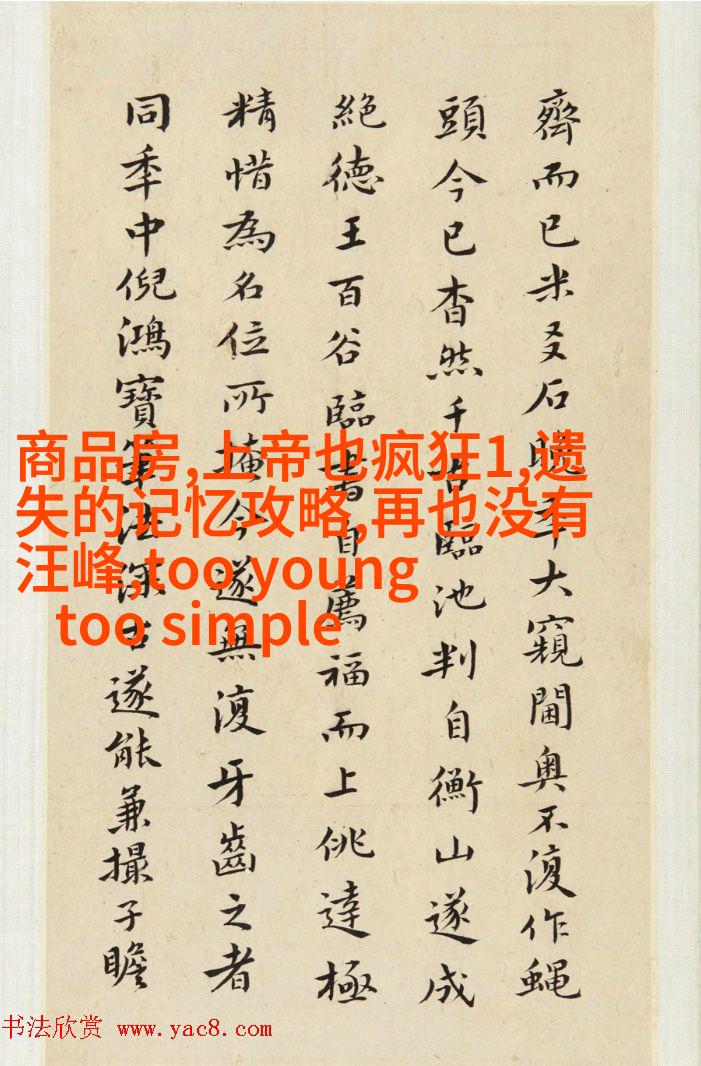 齊而已米友石晚年大窺閫奧不復作蠅
頭今已杳然千古臨池判自衡山遂成
絕德王百谷臨書自薦福而上佻達極
精惜為名位所掩今遂無復牙齒之者
同年中倪鴻寶筆法深古遂能兼撮子瞻
商品房,上帝也疯狂1,遗
失的记忆攻略,再也没有
汪峰,too young
too simple
书法欣赏 www.yac8.com